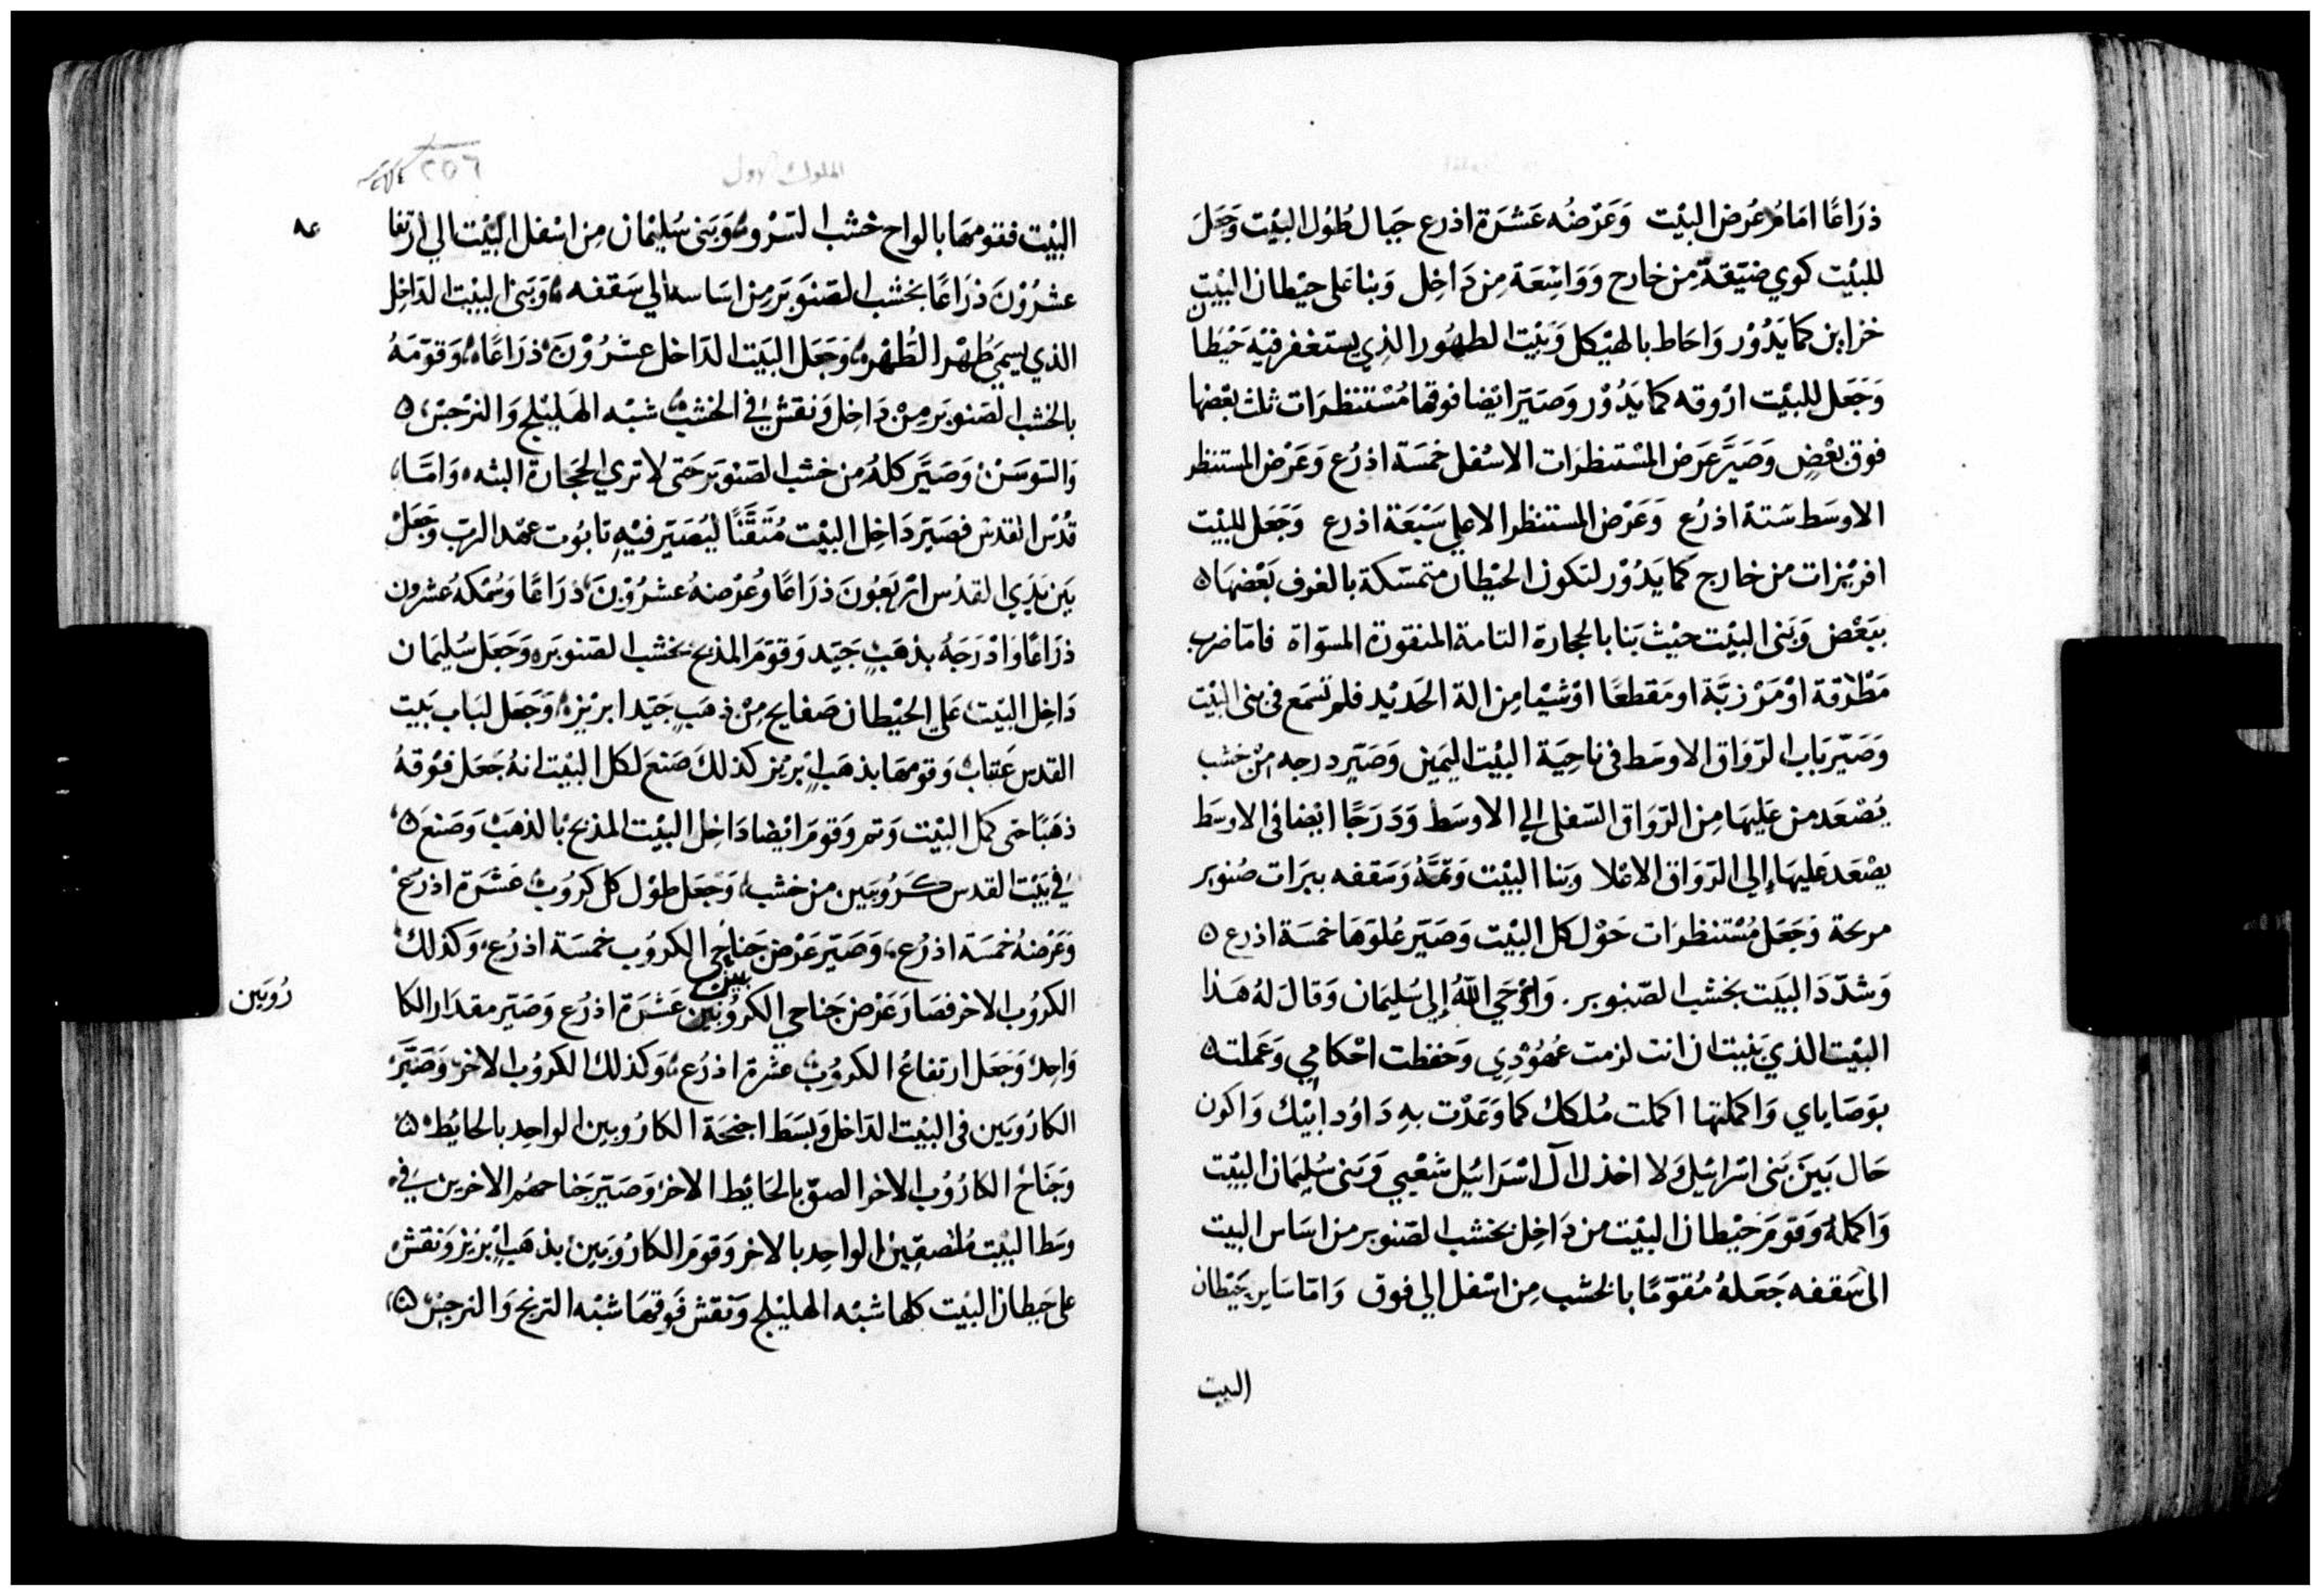 ذرَاعًا امَامُ عُرض البيْت وَعَرْضُه عَشرَة اذرع جبال طُوْل البيْت وَجَعَلَ
للبيْت كوي ضيّقةً مِن خارج وَوَاسِعَة مِن دَاخِل وَبنا عَلى حيْطان البيْت
خزاين كما يَدُوْر وَاحَاط بالهيْكل وَبيْت الطهُور الذِي يستغفر فيْهِ حَيْطا
وَجَعَل للبيْت ارْوقه كما يَدُوْر وَصَيّر ايْضا فوقها مُسْتنظرَات ثلث بَعْضها
فوق بعْضٍ وَصَيَّر عَرَض المسْتنظرَات الاسْفل خمسَة اذرُع وَعَرْض المستنظر
الاوسَط سَتة اذرُع وَعَرْض المستنظر الاعلي سَبْعَة اذرع وَجَعَل للبيْت
افريْزات من خارج كما يَدُوْر لتكون الحيْطان متمسّكة بالغرف بَعْضهَا ٥
ببَعْض وَبَنى البيْت حيْث بَنا بالحجارة التامة المنقورة المسوّاة فامّا ضرب
مَطْرَقة اوْ مَرْزبَّة او مَقطعًا اوْ شيْا مِن الة الحَديْد فلم تسْمَع فى بنى البيْت
وَصَيّر بَاب الرّوَاق الاوسَط فى ناحِيَة البيْت اليَمين وَصَيّر درجه مِنْ خشب
يُصْعَد من عَليهَا مِن الرّوَاق السّفلى الي الاوسَط وَدَرَجًا ايْضا فى الاوسَط
يصْعَد عَليهَا إلي الرّوَاق الاعْلا وبَنا البيْت وَتمَّهُ وَسَقفه ببرَات صُنوبر
مربحة وَجَعَل مُسْتنظرَات حَوْل كل البيْت وَصَيّر عُلوّهَا خمسَة اذرع ٥
وَشدّدَ البيَت بخشب الصّنوبر. وَاوْحَي اللهُ إلي سُليمان وَقالَ لهُ هَذا
البيْت الذي بَنيت ان انت لزمت عُهُوْدِي وَحَفظت احْكامِي وَعَملت ٥
بوَصَاياي وَاكملتها اكملت مُلكك كما وَعَدْت بهِ دَاوُد ابيْك وَاكون
حَال بَين بَنى اسْرائيْل وَلا اخذل آل اسْرَائيْل شَعْبي وَبَنى سُليمَان البيْت
وَاكملهُ وَقوّمَ حيْطان البيْت من دَاخِل بخشب الصّنوبر من اسَاس البيت
الى سَقفه جَعَلهُ مُقوّمًا بالخشب مِن اسْفل الي فوق وَامّا سَاير حَيْطان
البيت
الملوك الاول
٢٥٦
البيْت فقومهَا بالواح خشب السَّرْو وَبَنى سُليْمان مِن اسْفل البيْت الي ارتفا
عشرُوْنَ ذرَاعًا بخشب الصّنوبَر مِن اسَاسه الي سَقفه وَبَنى البيْت الدّاخِل
الذي يسمَي طُهْر الطُهْرَه وَجَعَل البيَت الدّاخل عشرُوْنَ ذرَاعًا وَقوّمَهُ
بالخشب الصّنوبَر مِنْ دَاخِل وَنقش في الخشب شبْه الهَليْلج وَالنرْجسْ ٥
وَالسّوسَنْ وَصَيَّر كلهُ مِن خشب الصّنوبَر حَتى لا تري الحجَارة البته وَامّا
قدْس القدس فصَيّر دَاخِل البيْت مُتقَّنًا ليُصَيّر فيْهِ تابُوت عهد الرب وَجَعَلْ
بَين يَدي القدُس ارْبَعُونَ ذرَاعًا وعُرْضهُ عشرُوْنَ ذرَاعًا وَسُمْكهُ عشرون
ذرَاعًا وَادْرَجَهُ بذهَبٍ جَيّد وَقوّمَ المذبح بخشب الصّنوبَر وَجَعَل سُليمَان
دَاخِل البيْت عَلي الحيْطان صَفايح مِنْ ذهَبٍ جَيّد ابريْز وَجَعَل لبَاب بَيت
القدس عَتبات وَقومهَا بذهَبٍ ابْريْز كذلكَ صَنعَ لكل البيْت انهُ جَعَل فوْقهُ
ذهَبًا حتى كمل البيْت وَتم وَقومَ ايْضا دَاخِل البيْت المذبح بالذهَبْ وَصَنعَ ٥
في بَيْت القدس كرُوبَين من خشب وَجَعَل طوْل كل كروُب عَشرَة اذرُعْ
وَعَرْضهُ خمسَة اذرُع وَصَيّر عَرْض جَناحَي الكروُب خمسَة اذرُع وَكذلك
الكروُب الاخر فصَار عَرْض جَناحي الكروُبَين عَشرَة اذرُع وَصَيّر مقدَار الكا
رُوبَين
وَاحِد وَجَعَل ارتفاعُ الكروُب عشرة اذرُع وَكذلك الكروُب الاخر وَصَيَّرَ
الكارُوبَين فى البيْت الدّاخل وَبسَط اجنحَة الكارُوبين الواحِد بالحايْط ٥
وَجَنَاحْ الكارُوُب الاخر الصق بالحَايْط الاخر وَصَيّر جَناحَهُم الاخرين في
وسَط البيْت مُلتصقيْن الواحِد بالاخر وَقومَ الكارُوبَين بذهَبٍ ابْريْز وَنقش
على حَيطان البيْت كلها شبْه الهليْلج وَنقش فوقهَا شبْه الترنج وَالنرجسْ ٥